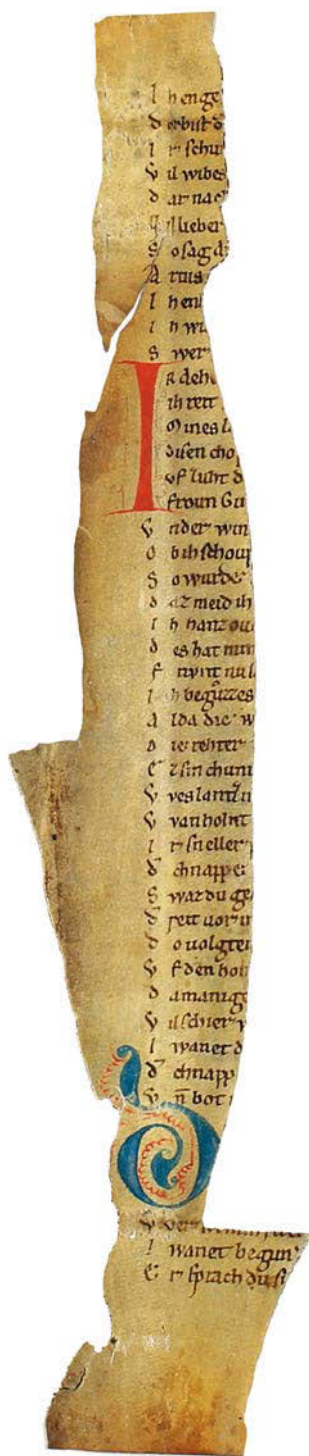 I h enge
d er bist d
I r schu
v il wibes
d ar nac
q il lieber
S o sag d
A rtus
I h en
I h wi
S wer
I R deh
ih reit
Mines l
disen chop
vf zuht d
froun Gi
V nder win
O b ih schoup
S o wurder
d az meid ih
I h hanz ou
d es hat min
F rivnt nu s
I h beguͦzzes
A lda die w
d ie rehter
E z sin chuni
V ves lant
V van holnt
I r sneller
d chnappe
S waz du ge
d reit vor in
d o uolgten
V f den hof
d a manige
V il schier w
I wanet d
d chnapp
V n̄ bot
D
V
I wanet begun
E r sprach du si